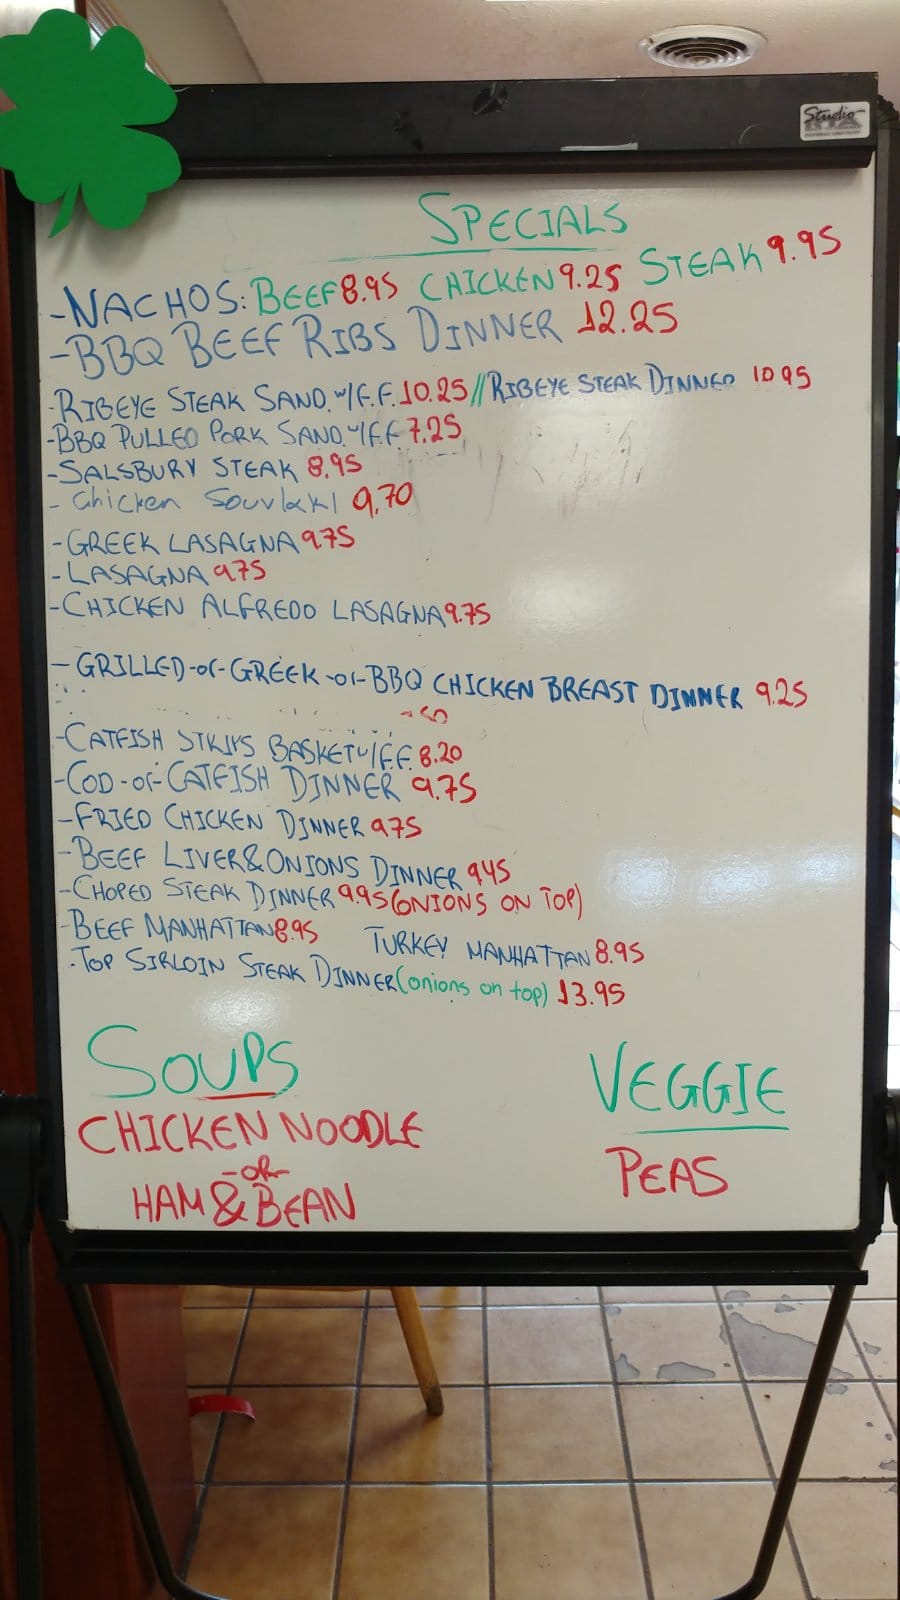 Studio
SPECIALS
-NACHOS: BEEF 8.95 CHICKEN 9.25 STEAK 9.95
-BBQ BEEF RIBS DINNER 12.25
-RIBEYE STEAK SAND. W/F.F. 10.25 // RIBEYE STEAK DINNER 10 95
-BBQ PULLED PORK SAND. W/F.F 7.25
-SALSBURY STEAK 8.95
- Chicken Souvlaki 9.70
-GREEK LASAGNA 9.75
-LASAGNA 9.75
-CHICKEN ALFREDO LASAGNA 9.75
-GRILLED-or-GREEK-or-BBQ CHICKEN BREAST DINNER 9.25
-CATFISH STRIPS BASKET W/F.F. 8.20
-COD-or-CATFISH DINNER 9.75
-FRIED CHICKEN DINNER 9.75
-BEEF LIVER & ONIONS DINNER 9.45
-CHOPED STEAK DINNER 9.95 (ONIONS ON TOP)
-BEEF MANHATTAN 8.95 TURKEY MANHATTAN 8.95
-TOP SIRLOIN STEAK DINNER (onions on top) 13.95
SOUPS
CHICKEN NOODLE
-OR-
HAM & BEAN
VEGGIE
PEAS